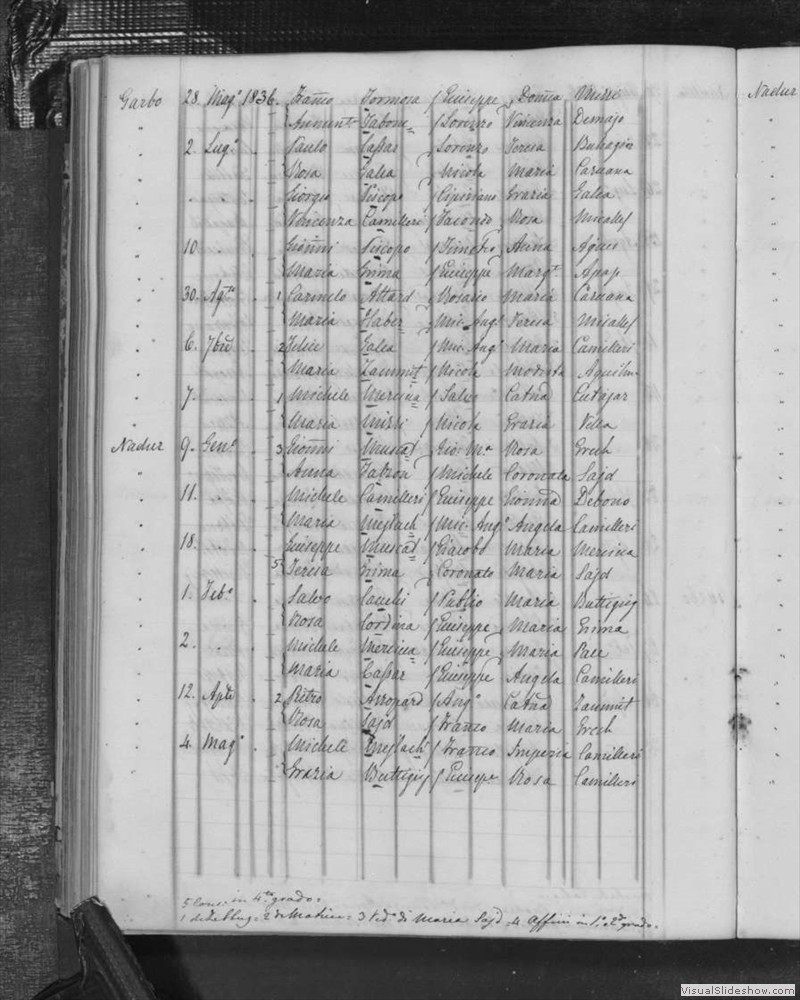 Garbo 28. Mag.º 1836. Franco Formosa f Giuseppe, Domca
" Tabone f Lorenzo Vincenza Demajo
" 2. Lug.º . Paulo Cassar f Lorenzo Teresa Buhagiar
" Rosa Galea f Nicola Maria Caruana
" . . . Giorgio Piscopo f Cipriano Grazia Galea
" Vincenza Camilleri f Rosa Micallef
" 10 . . Gioanni Piscopo f Anna
" Maria Grima f Giuseppe Marg.ta Apap
" 30. Ag.to . 1 Carmelo Attard f Rosario Maria Caruana
" Maria Haber f Mic. Ang.º Teresa Micallef
" 6. 7bre . 2 Felice Galea f Mic. Ang.º Maria Camilleri
" Maria Zammit f Nicola Modesta
" 7. . . 1 Michele Mercica f Salvo Catna Cutajar
" Maria Mizzi f Nicola Grazia Vella
Nadur 9. Gen.º . 3 Gioanni Muscat f Gio. Ma. Rosa Grech
" Anna f Michele Coronata Sajd
" 11. . . Michele Camilleri f Giuseppe Gioanna Debono
" Maria Mejlach f Mic. Ang.º Angela Camilleri
" 18. . . Giuseppe Muscat f Giacobo Maria Mercica
" 5 Teresa Grima f Coronato Maria Sajd
" 1. Feb.º . Salvo Cauchi f Publio Maria Buttigieg
" Rosa Cordina f Giuseppe Maria Grima
" 2. . . Michele Mercica f Giuseppe Maria Pace
" Maria Cassar f Giuseppe Angela Camilleri
" 12. Aple . 2 Pietro Azzopard f Ang.º Catna Zammit
" Rosa Sajd f Franco Maria Grech
" 4. Mag.º . Michele Mejlach f Franco Imperia Camilleri
" Grazia Buttigieg f Giuseppe Rosa Camilleri
5 Cons: in 4.to grado.
3 Ved.º di Maria Sajd. 4 Affini in 1.º 2.º grado.
Nadur
VisualSlideshow.com